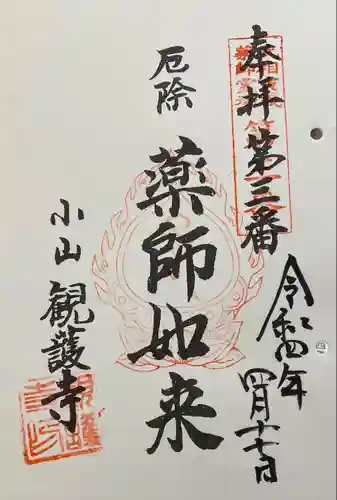 奉拝 第三番
令和四年
四月十七日
厄除
薬師如来
小山 観護寺